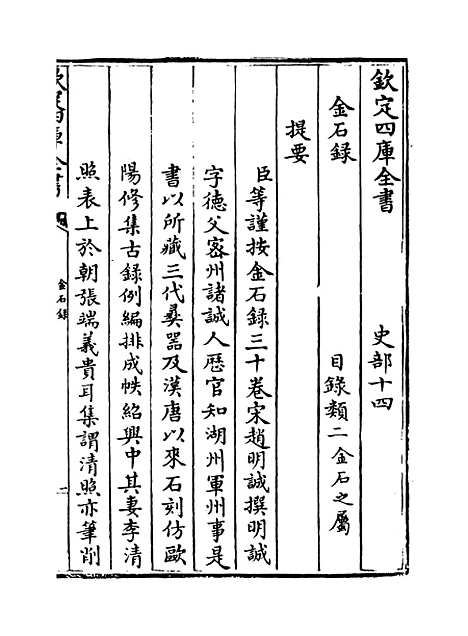 欽定四庫全書　　　史部十四
金石録　　　　　　目録類二金石之屬
提要
臣等謹按金石録三十卷宋趙明誠撰明誠
字德父密州諸誠人歴官知湖州軍州事是
書以所藏三代彛器及漢唐以來石刻仿歐
陽修集古録例編排成帙紹興中其妻李清
照表上於朝張端義貴耳集謂清照亦筆削
金石録